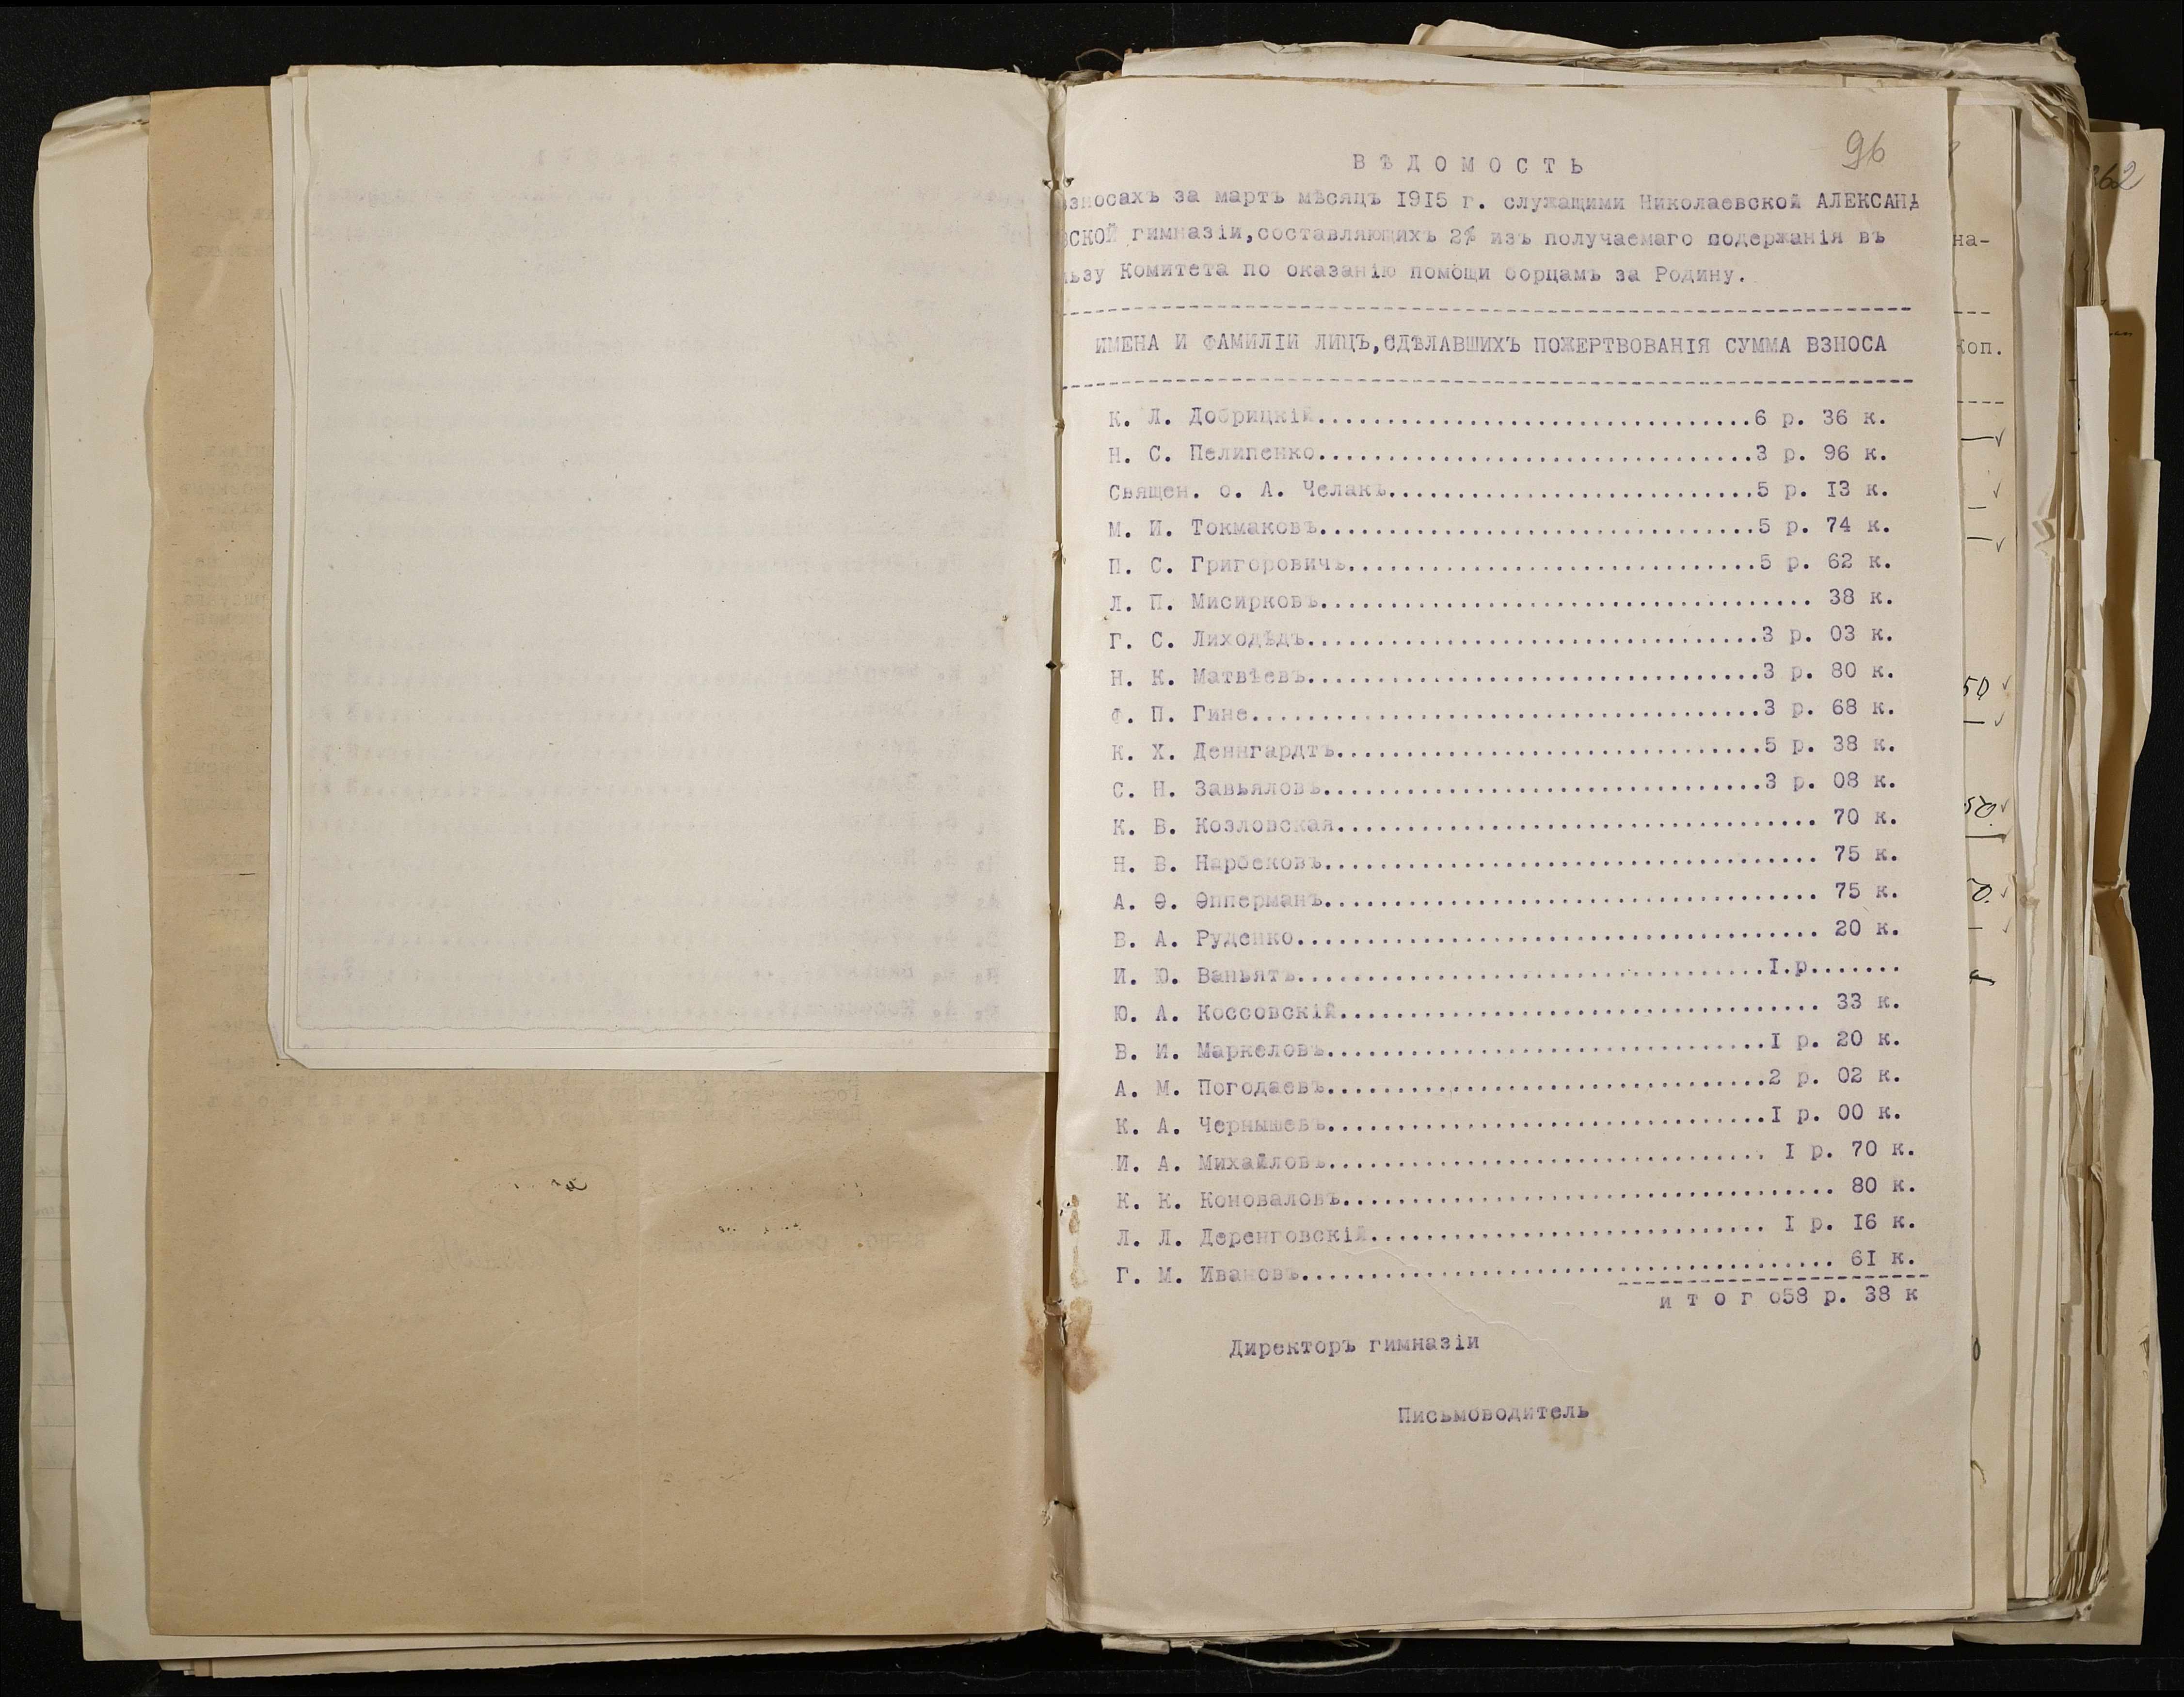 96
ВѢДОМОСТЬ
взносахъ за мартъ мѣсяцъ 1915 г. служащими Николаевской АЛЕКСАНД
ВСКОЙ гимназіи,составляющихъ 2% изъ получаемаго содержанія въ
льзу Комитета по оказанію помощи борцамъ за Родину.
ИМЕНА И ФАМИЛІИ ЛИЦЪ,СДѢЛАВШИХЪ ПОЖЕРТВОВАНІЯ СУММА ВЗНОСА
К. Л. Добрицкій...............................6 р. 36 к.
Н. С. Пелипенко...............................3 р. 96 к.
Священ. о. А. Челакъ..........................5 р. I3 к.
М. И. Токмаковъ...............................5 р. 74 к.
П. С. Григоровичъ.............................5 р. 62 к.
Л. П. Мисирковъ................................... 38 к.
Г. С. Лиходѣдъ................................3 р. 03 к.
Н. К. Матвѣевъ................................3 р. 80 к.
Ф. П. Гине....................................3 р. 68 к.
К. Х. Деннгардтъ..............................5 р. 38 к.
С. Н. Завьяловъ...............................3 р. 08 к.
К. В. Козловская.................................. 70 к.
Н. В. Нарбековъ................................... 75 к.
А. Ѳ. Ѳпперманъ................................... 75 к.
В. А. Руденко..................................... 20 к.
И. Ю. Ваньятъ.................................I.р.......
Ю. А. Коссовскій.................................. 33 к.
В. И. Маркеловъ...............................I р. 20 к.
А. М. Погодаевъ...............................2 р. 02 к.
К. А. Чернышевъ...............................I р. 00 к.
И. А. Михайловъ............................... I р. 70 к.
К. К. Коноваловъ................................... 80 к.
Л. Л. Деренговскій............................ I р. I6 к.
Г. М. Ивановъ...................................... 6I к.
и т о г о58 р. 38 к
Директоръ гимназіи
Письмоводитель
на-
коп.
50
50.
62